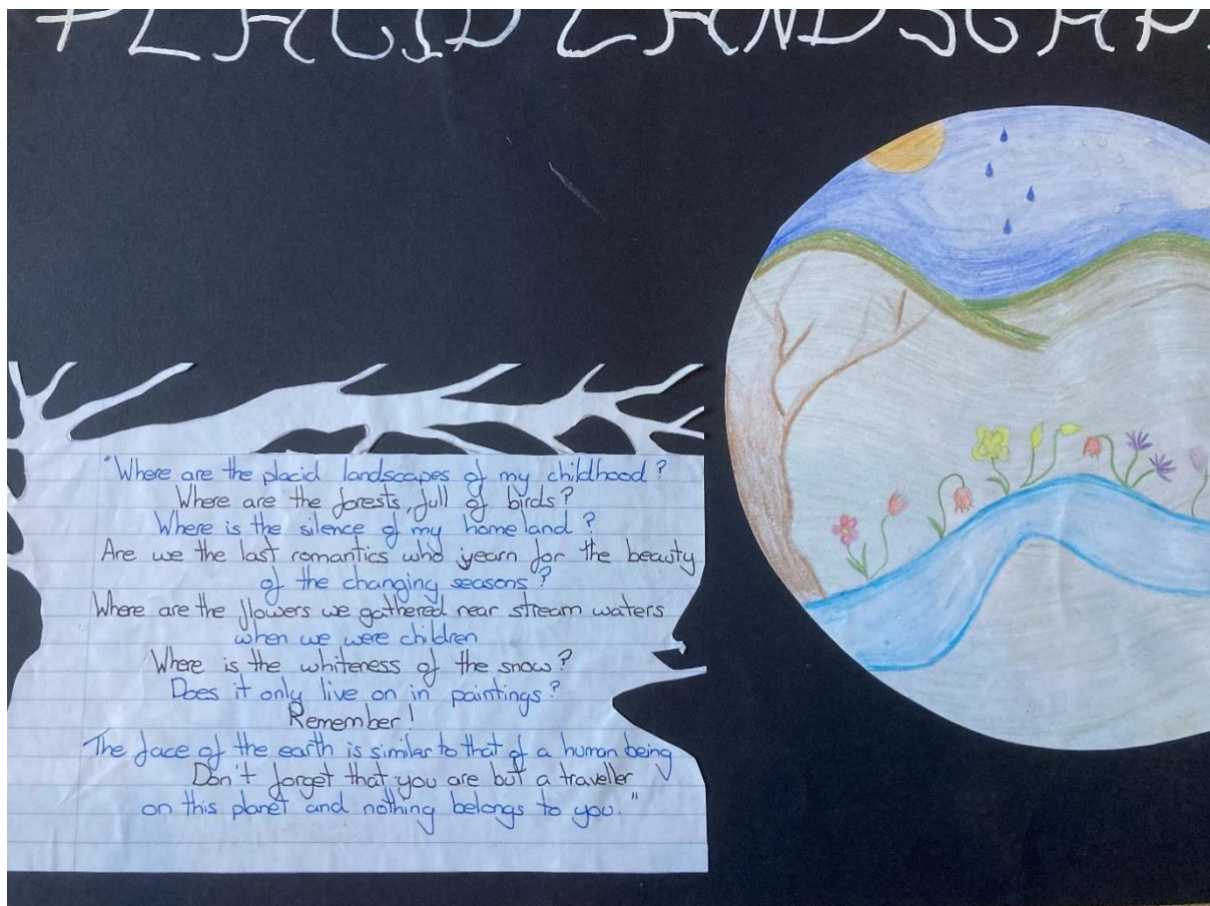 PLACID LANDSCAP
"Where are the placid landscapes of my childhood?
Where are the forests, full of birds?
Where is the silence of my homeland?
Are we the last romantics who yearn for the beauty
of the changing seasons?
Where are the flowers we gathered near stream waters
when we were children
Where is the whiteness of the snow?
Does it only live on in paintings?
Remember!
The face of the earth is similar to that of a human being
Don't forget that you are but a traveller
on this planet and nothing belongs to you."